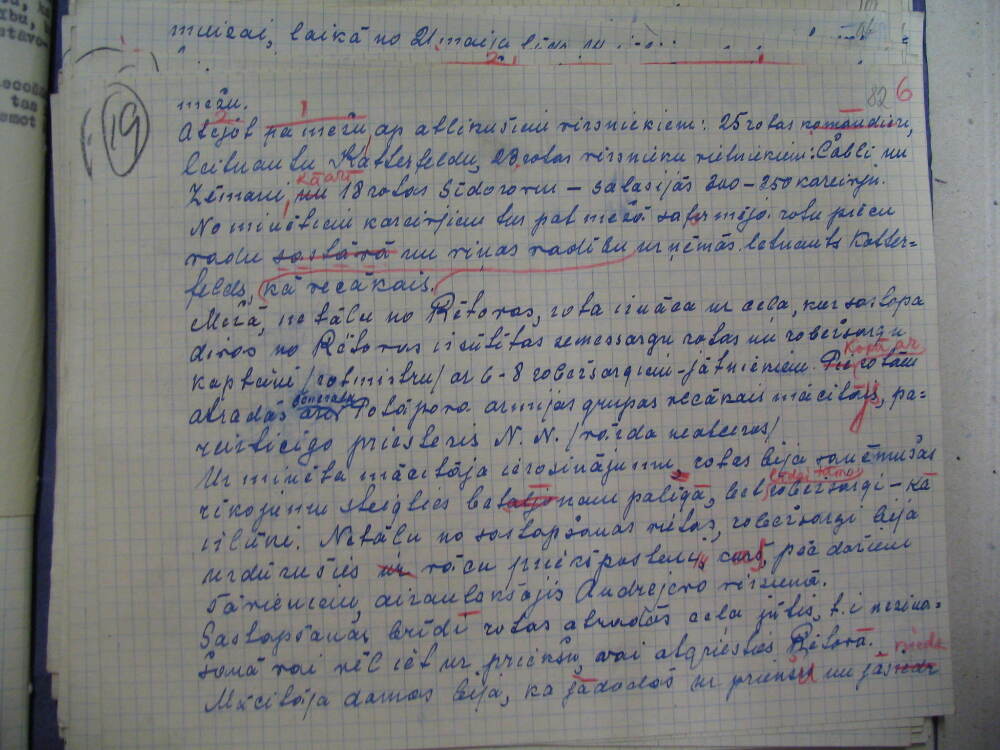 muižai, laikā no 21 maija līdz
82 6
19
mežu.
Atejot pa mežu, ap atlikušiem virsniekiem: 25 rotas komandieri,
leitnantu Katterfeldu, 23 rotas virsnieku vietniekiem: Cābli un
Zēmani, kā arī 18 rotas Sidorovu – salasījās 200–250 kareivju.
No minētiem kareivjiem tur pat mežā saformēja rotu piecu
vadu sastāvā un viņas vadību uzņēmās leitnants Katter=
felds, kā vecākais.
Mežā, netālu no Rētovas, rota iznāca uz ceļa, kur sastopa
divas no Rētovas izsūtītas zemessargu rotas un robežsargu
kapteini /rotmistru/ ar 6-8 robežsargiem-jātniekiem. Kopā ar rotām
atradās ģenerāļa Potapova armijas grupas vecākais mācītājs, pa=
reizticīgo priesteris N. N. /vārda neatceros/
Uz minēta mācītāja ierosinājumu rotas bija saņēmušas
rīkojumu steigties bataljonam palīgā, bet robežsargi – kā
izlūki. Netālu no sastapšanas vietas, robežsargi bija
uzdūrušies vācu priekšposteņiem, pēc dažiem
šāvieniem, aizauļoksājis Andrejevo virzienā.
Sastapšanās brīdī rotas atradās ceļa jūtīs, t.i. nezinā=
šanā vai vēl iet uz priekšu, vai atgriesties Rētovā.
Mācītāja domas bija, ka jādodās uz priekšu un